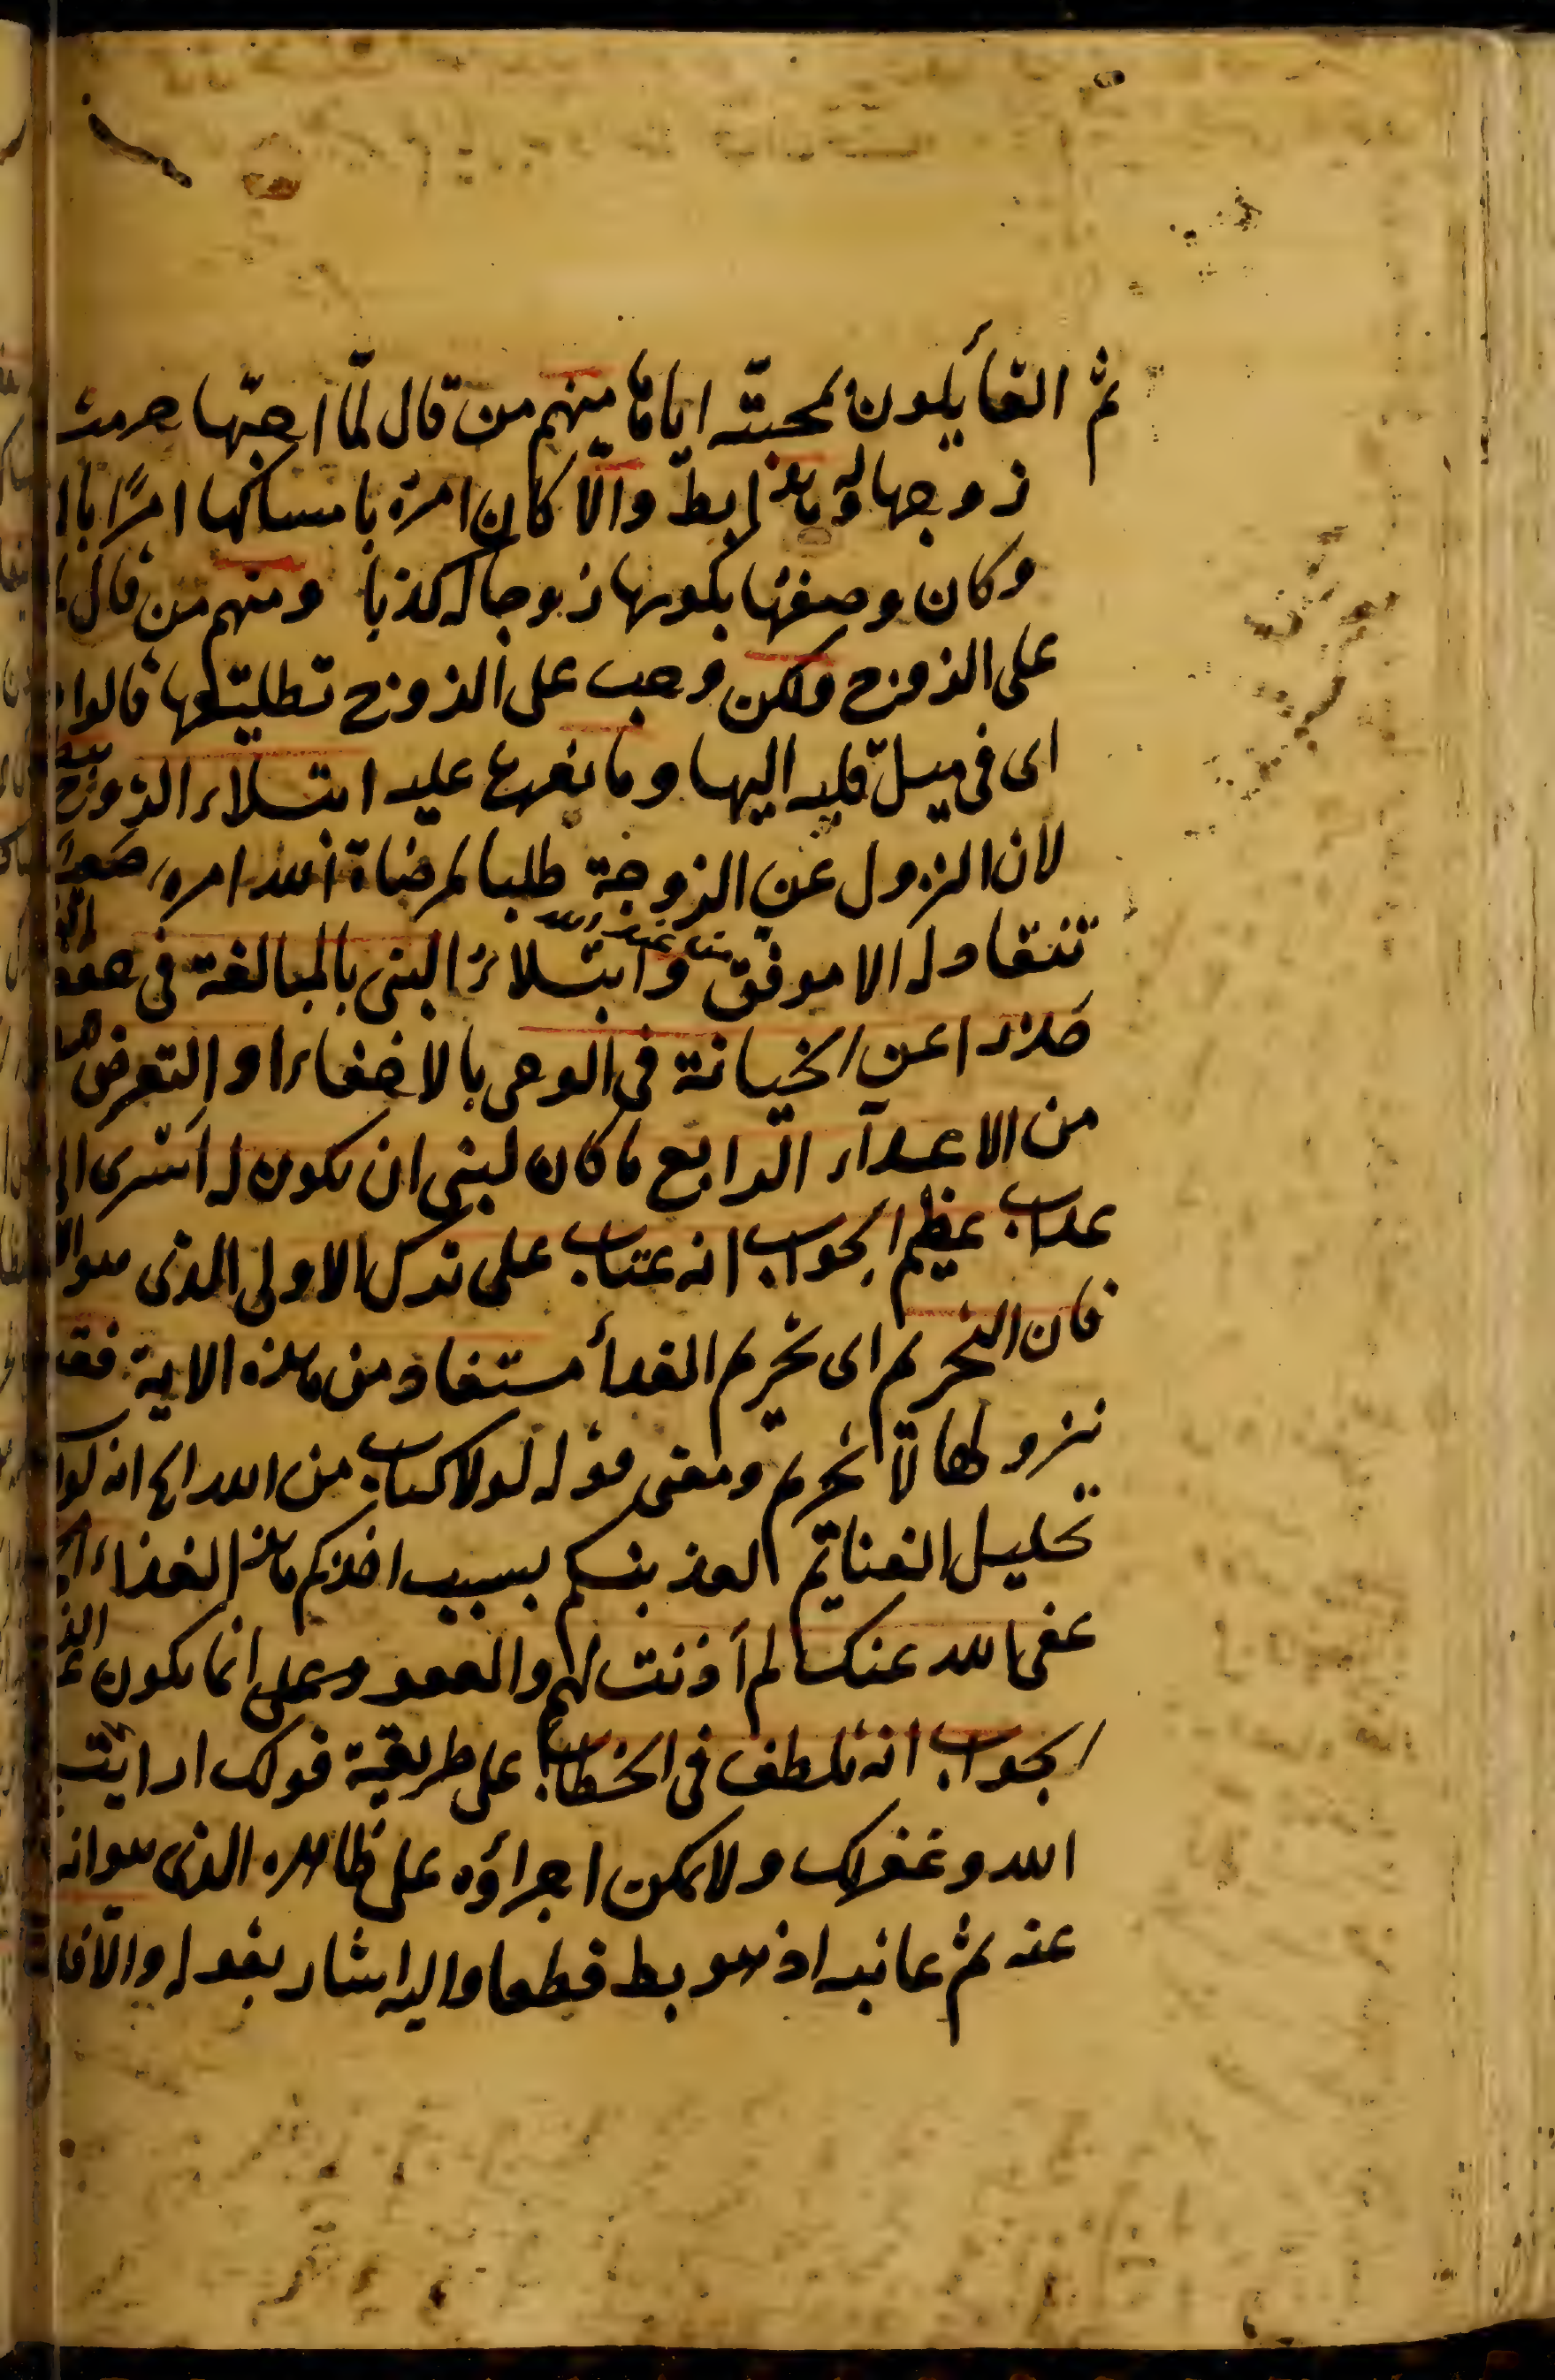 ثم القأيلون بمحبته اياها منهم من قال لمّا احبّها حرمت
زوجها وهذا بط والّا كان امره بامساكها امرًا با
وكان وصفها بكونها زوجا له كذبا ومنهم من قال
على الزوج ولكن وجب على الزوج تطليقها قالوا
اى فى ميل قلبه اليها وما يفرع عليه ابتلاء الزوج
لان النزول عن الزوجة طلبا لمرضاة الله امر صعب
يتقاد له الا موفق وابتلاء النبى بالمبالغة فى حفظ
حذرا عن الخيانة فى الوحى بالاخفاء او التعرض
من الاعدآء الرابع ما كان لنبى ان يكون له اسرى الى
عذاب عظيم الجواب انه عتاب على ترك الاولى الذى
فان التحريم اى تحريم الفدأ مستفاد من هذه الاية فقبل
نزولها لا تحريم ومعنى قوله لولا كتاب من الله الخ انه لولا
تحليل الغنايم لعذبتكم بسبب اخذكم هذا الفداء
عفى الله عنك لم أذنت لهم والعفو انما يكون
الجواب انه تلطف فى الخطاب على طريقة قولك ارايت
الله وغفر لك ولا يمكن اجراؤه على ظاهره الذى هو انه
عنه ثم عاتبه اذ هو بط قطعا واليه اشار بقوله والّا فا